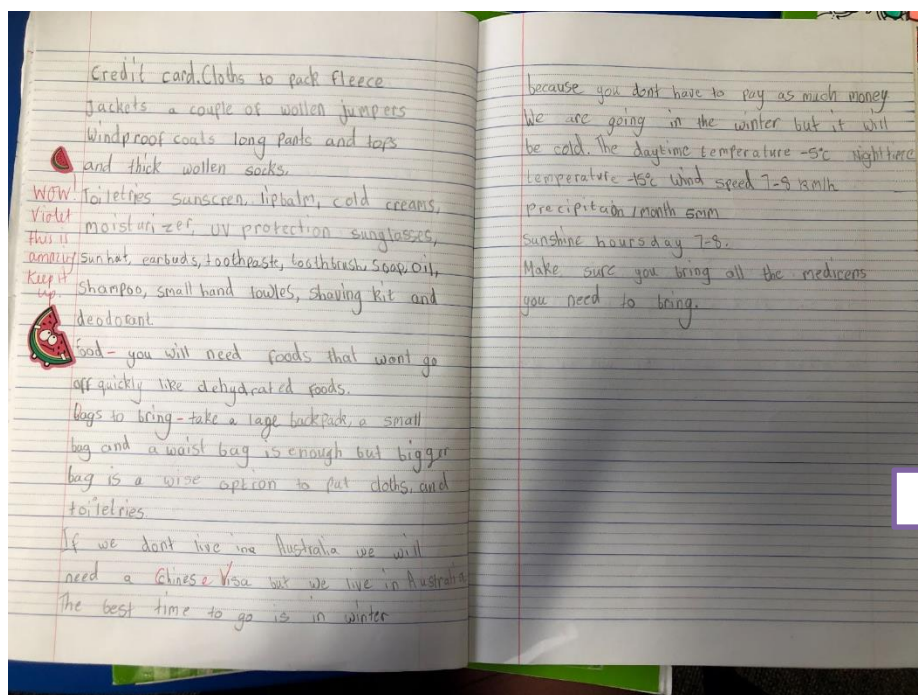 Credit card. Cloths to pack fleece
Jackets a couple of wollen jumpers
Windproof coats long pants and tops
and thick wollen socks.
Toiletries sunscren, lipbalm, cold creams,
moisturizer, UV protection sunglasses,
sunhat, earbuds, toothpaste, toothbrush, soap, oil,
shampoo, small hand towles, shaving kit and
deodorant.
food - you will need foods that wont go
off quickly like dehydrated foods.
bags to bring - take a lage backpack, a small
bag and a waist bag is enough but bigger
bag is a wise option to put cloths, and
toiletries
If we dont live in Australia we will
need a Chinese Visa but we live in Australia
The best time to go is in winter
WOW!
Violet
this is
amazing
Keep it
up.
because you dont have to pay as much money
We are going in the winter but it will
be cold. The daytime temperature -5°c Nighttime
temperature -15°c Wind speed 7-8 km/h
precipitaion /month 5mm
sunshine hours day 7-8.
Make sure you bring all the medicens
you need to bring.